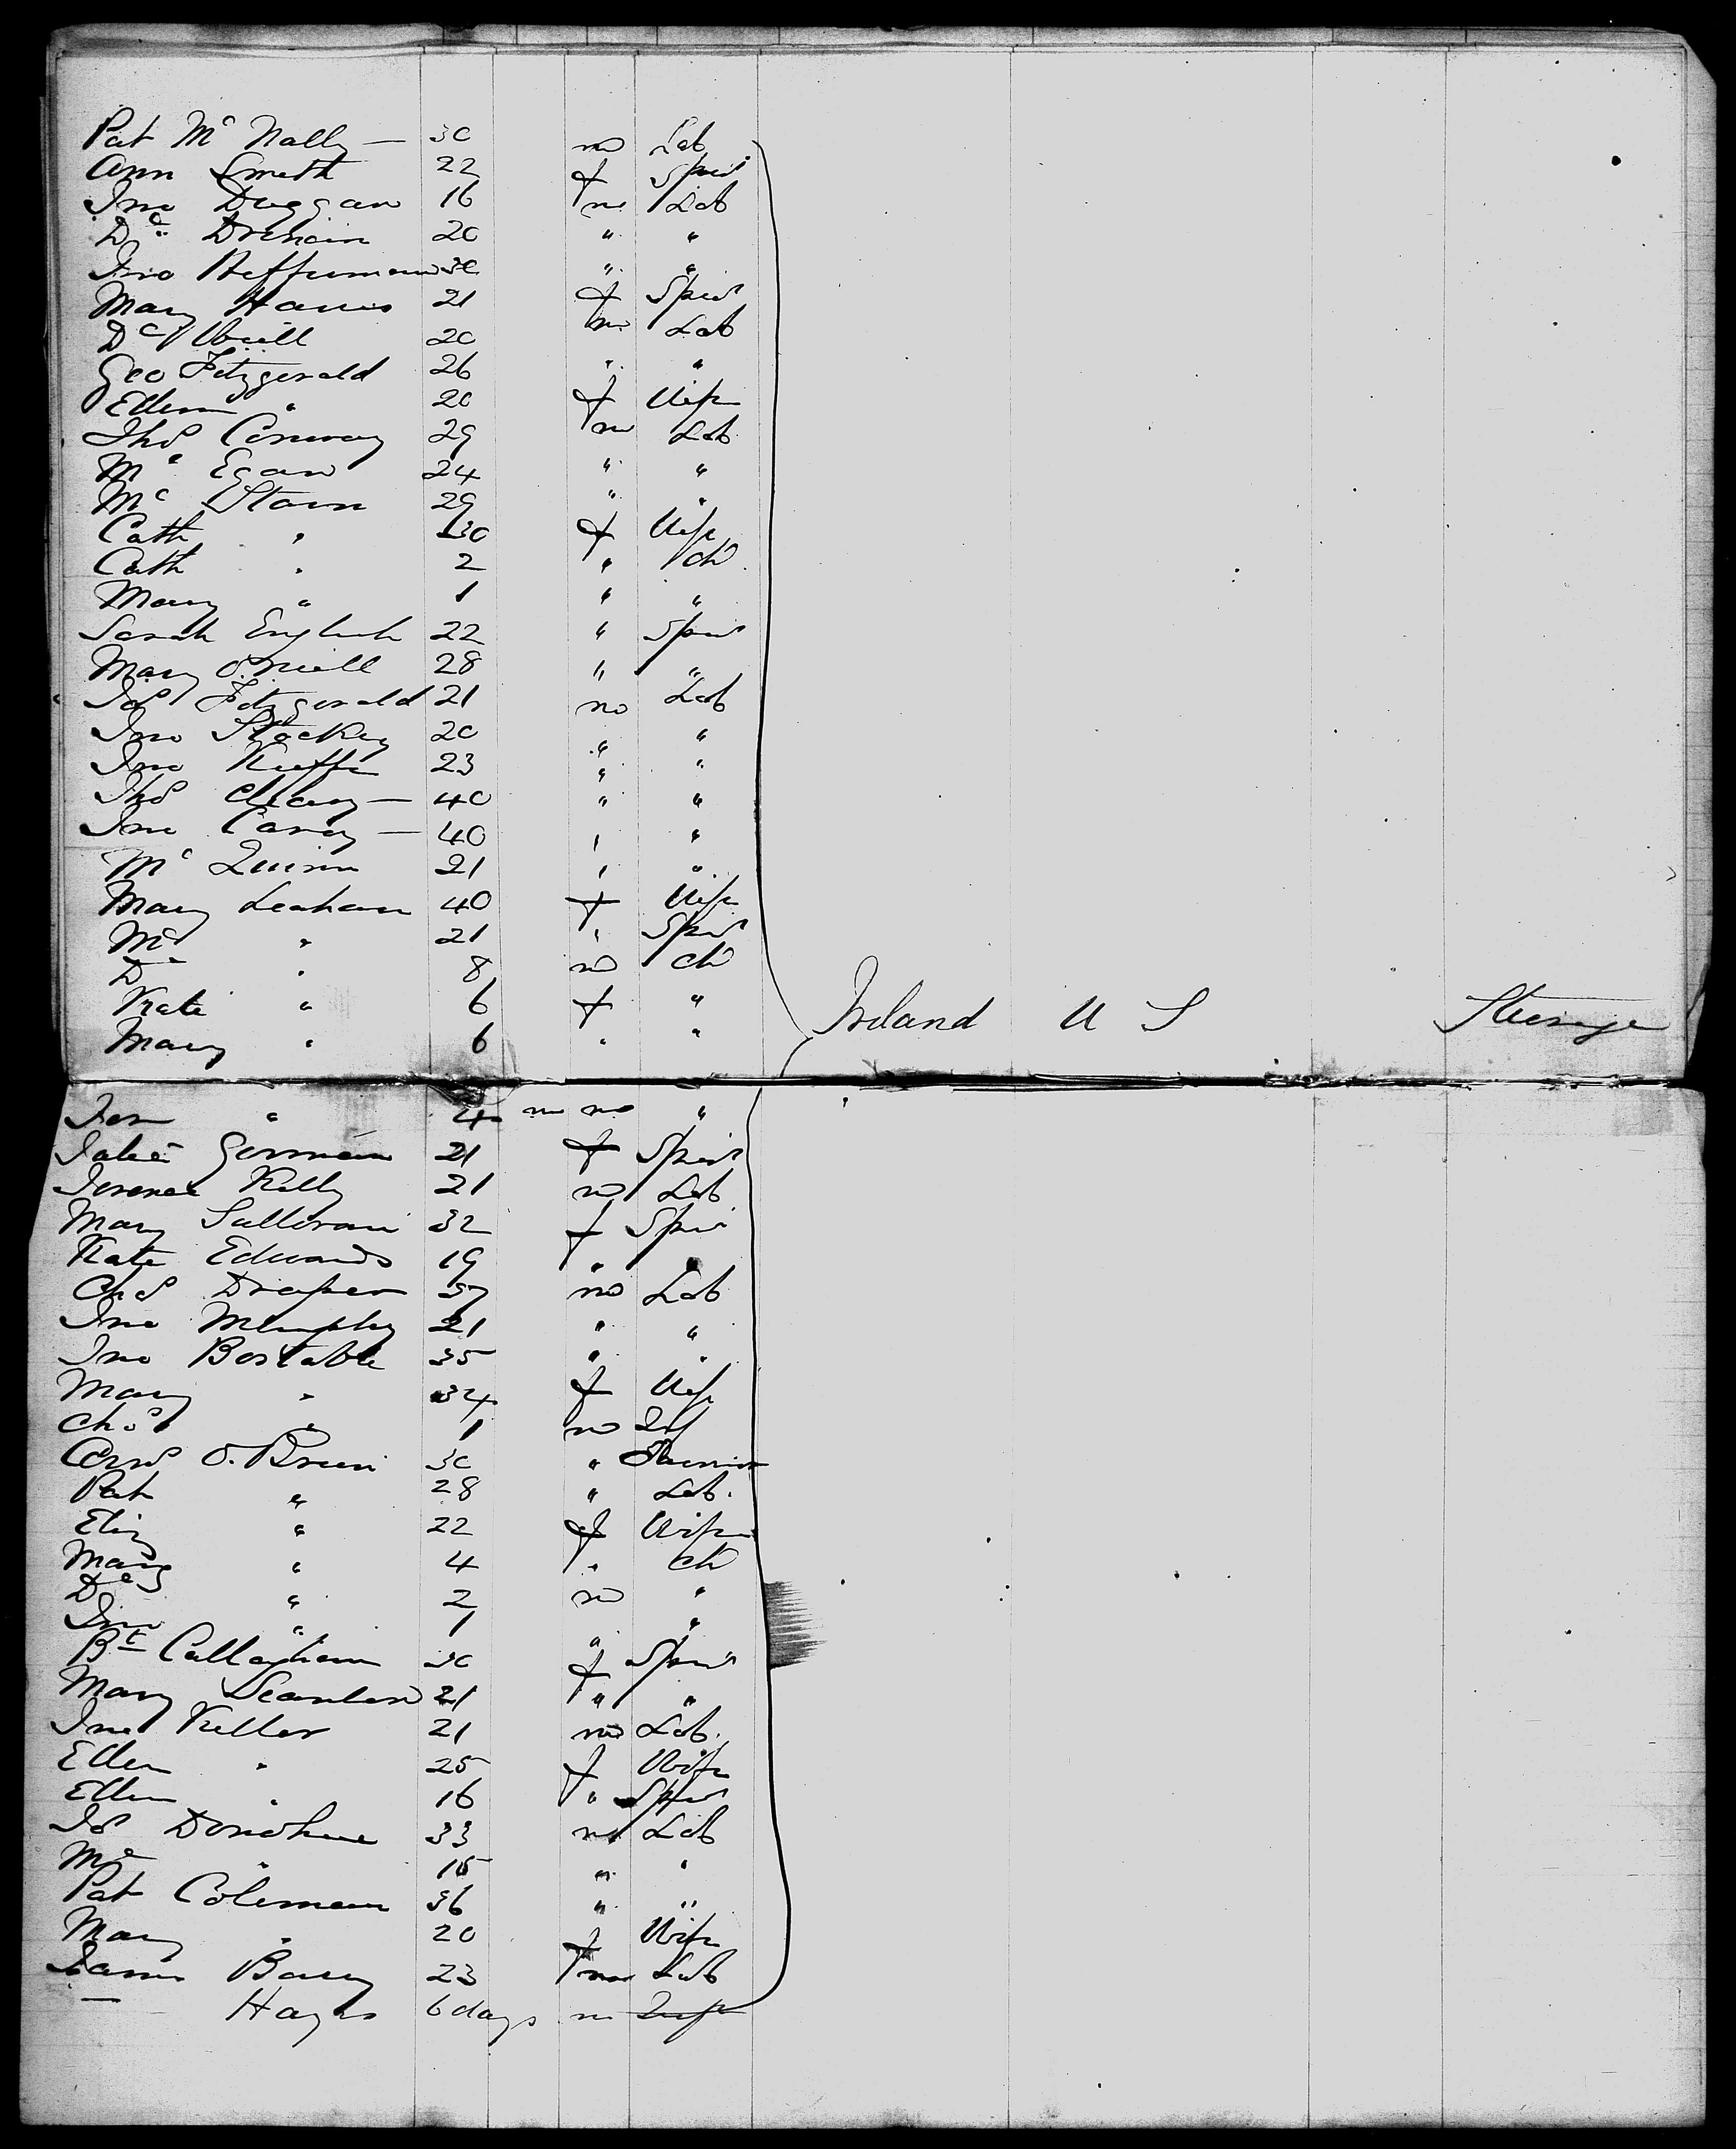 Pat Mc Nally — 30 m Lab
Ann Smith 22 f Spin
Jno Duggan 16 m Lab
Dl " 20 " "
Jno Heffernan 30 " "
Mary Harris 21 f Spin
20 m Lab
Geo Fitzgerald 26 " "
Ellen " 20 f Wife
Thos Conway 29 m Lab
Ml Egan 24 " "
Mc 29 " "
Cath " 30 f Wife
Cath " 2 " ch
Mary " 1 " "
Sarah English 22 " Spin
Mary O.Neill 28 " "
Jas Fitzgerald 21 m Lab
Jno 20 " "
Jno Keeffe 23 " "
Thos Cleary — 40 " "
Jno Carey — 40 " "
Mc Quinn 21 " "
Mary Leahan 40 f Wife
" 21 " Spin
D " 8 m ch
Kate " 6 f "
Mary " 6 " " Ireland U S Steerage
" 4 m m "
Julia Gorman 21 f Spin
Kelly 21 m Lab
Mary Sullivan 32 f Spin
Kate Edwards 19 " "
Chs Draper 37 m Lab
Jno Murphy 21 " "
Jno Bastable 35 " "
Mary " 34 f Wife
Chas " 1 m Inf
O.Brien 30 "
Pat " 28 " Lab.
Eliz " 22 f Wife
Mary " 4 " ch
" 2 m "
Jno " 1 " "
Bt Callaghan 30 f Spin
Mary Scanlan 21 " "
Jno Keller 21 m Lab.
Ellen " 25 f Wife
Ellen " 16 " Spin
Js Donohue 33 m Lab
Mc " 15 " "
Pat Coleman 36 " "
Mary " 20 f Wife
James Barry 23 m Lab
— Hayes 6 days m Inf